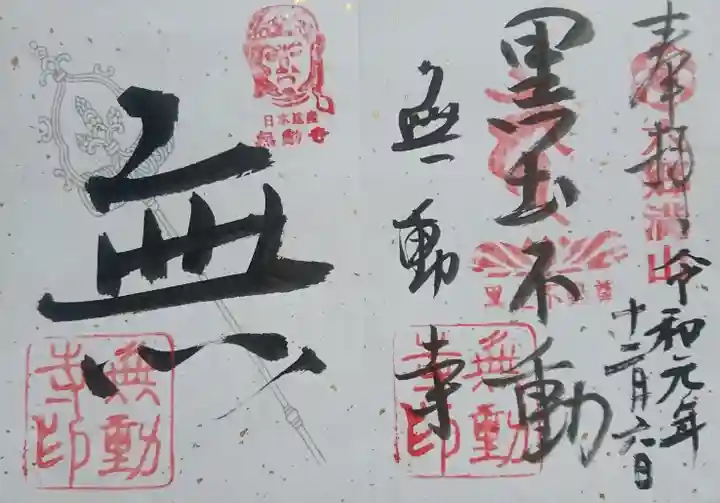 奉拝
令和元年
十二月六日
黒玉不動
無動寺
無動寺印
無
日本延命
無動寺
無動寺印